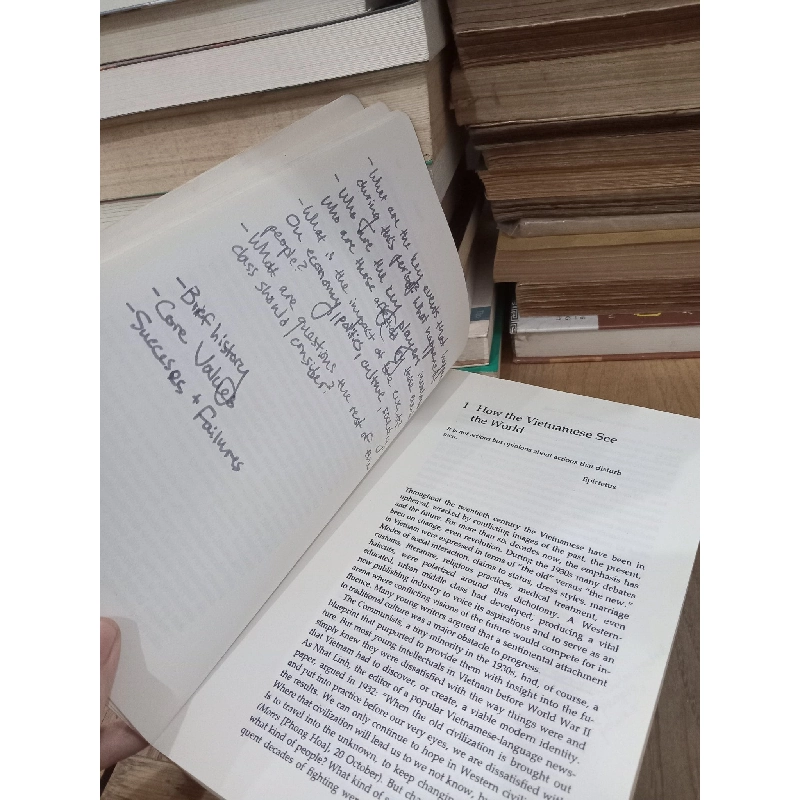 - What are the key events that
during this period? What happened?
- Who are the key players
Who are those affected by
- What is the impact of
On economy, politics, culture,
people?
- What are questions the rest of the
class should consider?
- Brief history
- Core Values
- Succeses + Failures
1 How the Vietnamese See
the World
It is not actions but opinions about actions that disturb
men.
Epictetus
Throughout the twentieth century the Vietnamese have been in
upheaval, wracked by conflicting images of the past, the present,
and the future. For more than six decades now, the emphasis has
been on change, even revolution. During the 1930s many debates
in Vietnam were expressed in terms of "the old" versus "the new."
Modes of social interaction, claims to status, dress styles, marriage
customs, literature, religious practices, medical treatment, even
haircuts, were polarized around this dichotomy. A Western-
educated, urban middle class had developed, producing a vital
new publishing industry to voice its aspirations and to serve as an
arena where conflicting visions of the future would compete for in-
fluence. Many young writers argued that a sentimental attachment
to traditional culture was a major obstacle to progress.
The Communists, a tiny minority in the 1930s, had, of course, a
blueprint that purported to provide them with insight into the fu-
ture. But most young intellectuals in Vietnam before World War II
simply knew they were dissatisfied with the way things were and
that Vietnam had to discover, or create, a viable modern identity.
As Nhat Linh, the editor of a popular Vietnamese-language news-
paper, argued in 1932: "When the old civilization is brought out
and put into practice before our very eyes, we are dissatisfied with
the results. We can only continue to hope in Western civili
Where that civilization will lead us to we not know, b
is to travel into the unknown, to keep changing
(Mores [Phong Hoa], 20 October). But cha
what kind of people? What kind of s
quent decades of fighting wer